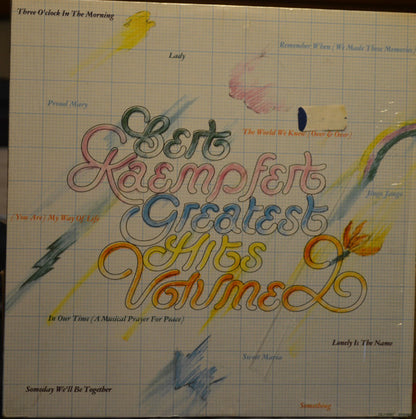 Three O'clock In The Morning
Lady
Remember When (We Made These Memories)
Proud Mary
The World We Knew (Over & Over)
Bert
Kaempfert
Greatest
Hits
Volume 2
Jinga Jenga
(You Are) My Way Of Life
In Our Time (A Musical Prayer For Peace)
Lonely Is The Name
Sweet Maria
Someday We'll Be Together
Something